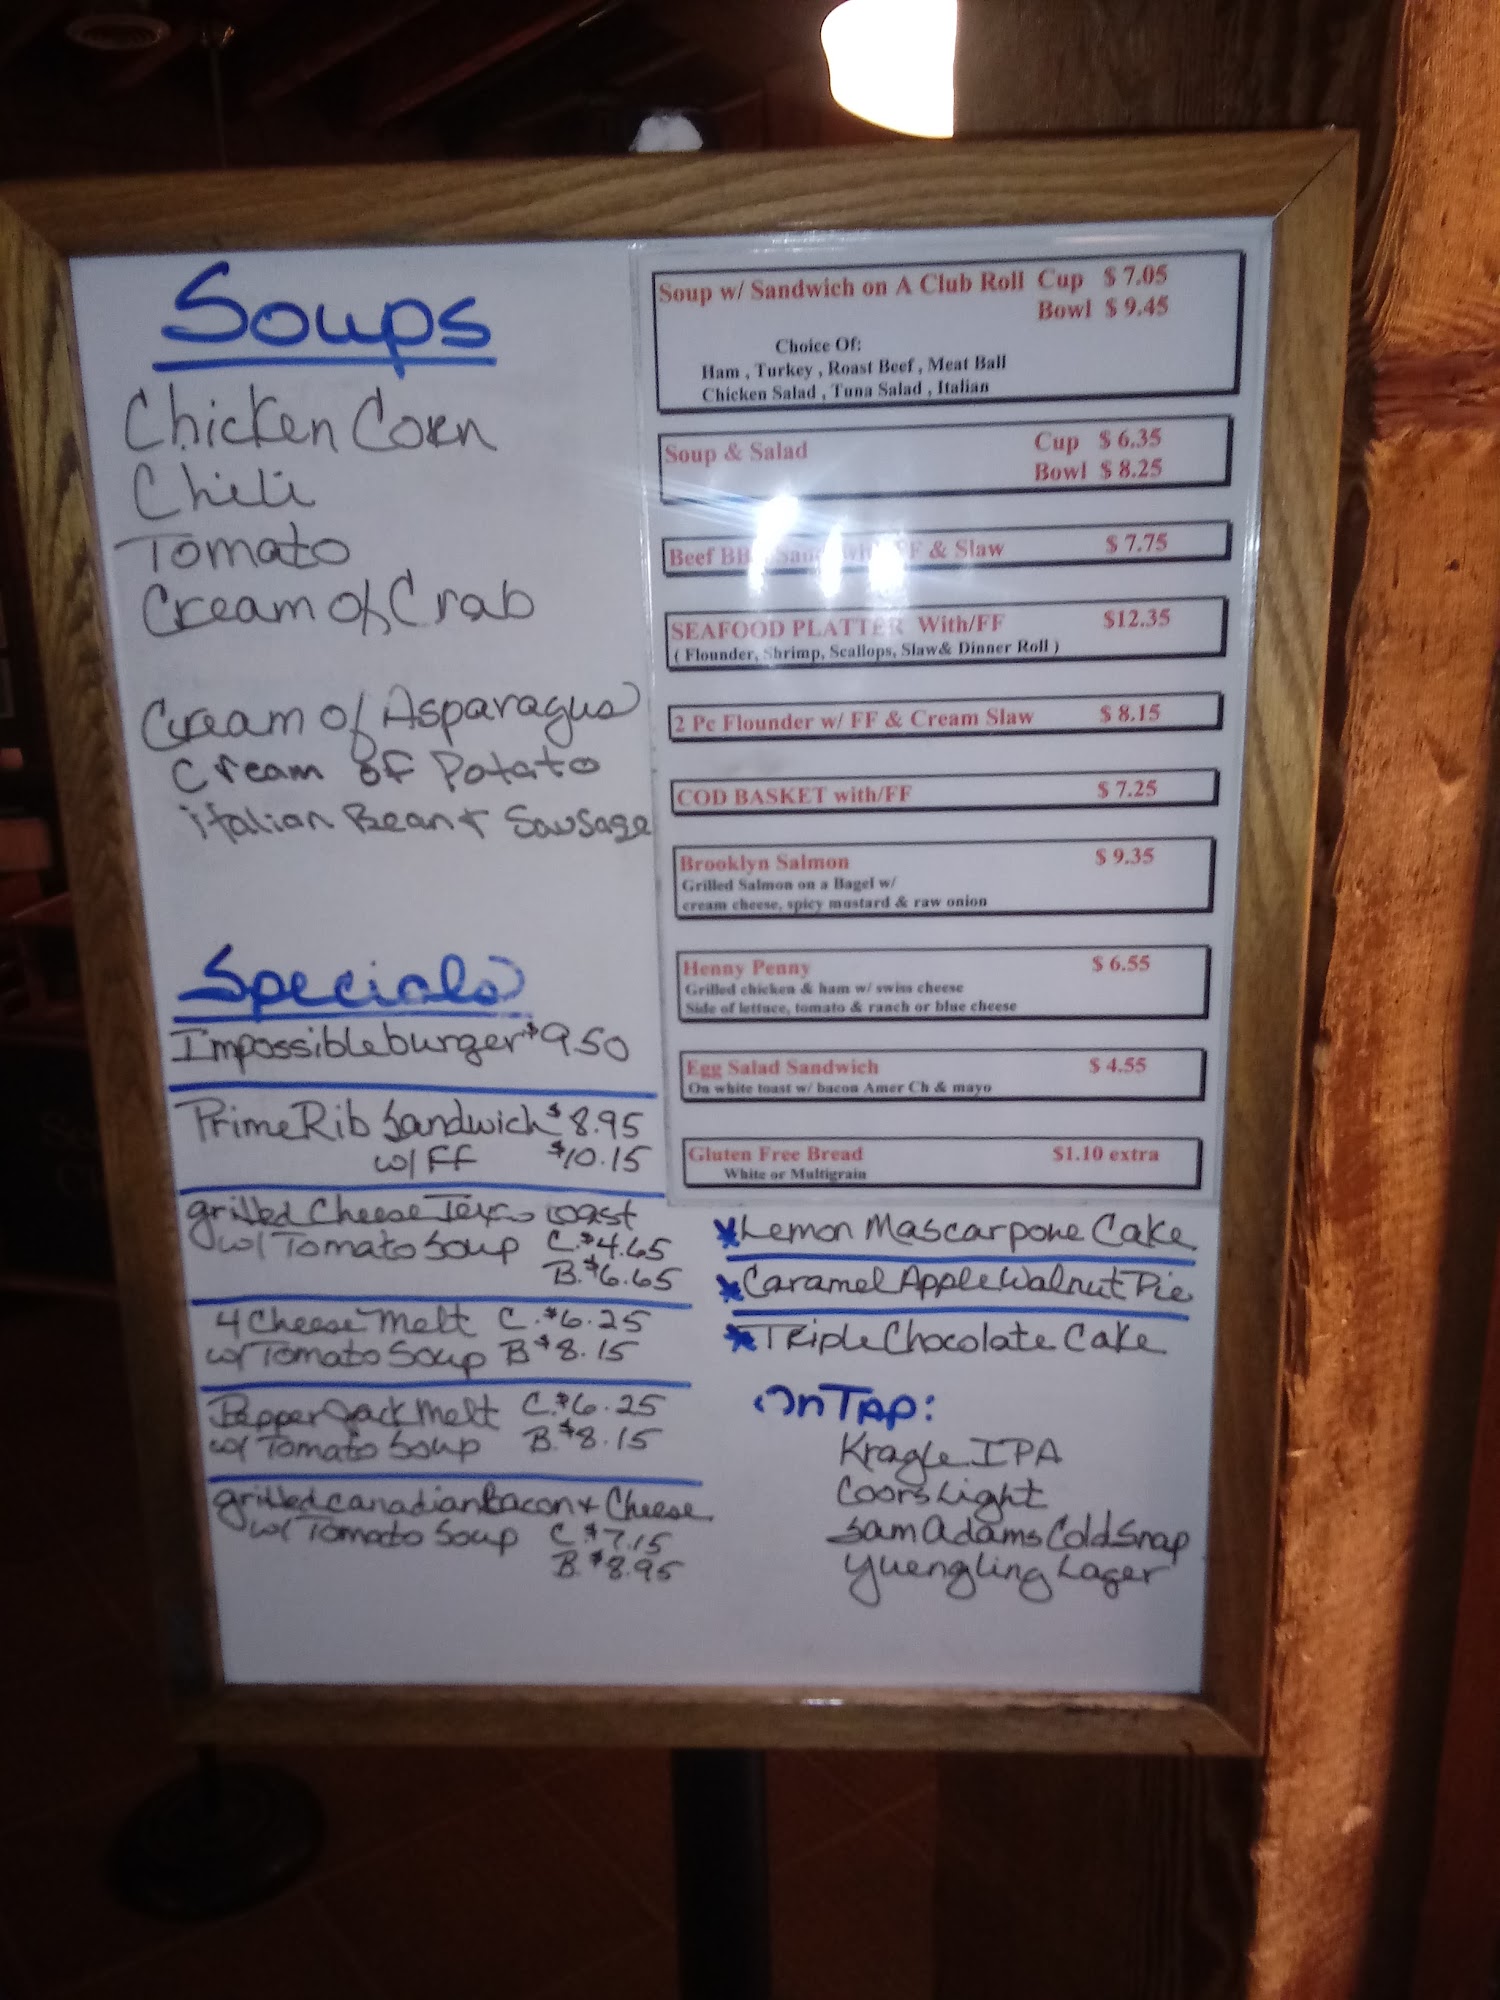 Soups
Chicken Corn
Chili
Tomato
Cream of Crab
Cream of Asparagus
Cream of Potato
italian Bean & Sausage
Specials
Impossible burger $9.50
Prime Rib Sandwich $8.95
w/ FF $10.15
grilled Cheese Texas toast
w/ Tomato Soup C. $4.65
B. $6.65
4 Cheese Melt C. $6.25
w/ Tomato Soup B $8.15
Pepper Jack Melt C. $6.25
w/ Tomato Soup B. $8.15
grilled canadian Bacon & Cheese
w/ Tomato Soup C $7.15
B. $8.95
Soup w/ Sandwich on A Club Roll Cup $ 7.05
Bowl $ 9.45
Choice Of:
Ham , Turkey , Roast Beef , Meat Ball
Chicken Salad , Tuna Salad , Italian
Soup & Salad Cup $ 6.35
Bowl $ 8.25
Beef BBQ Sandwich FF & Slaw $ 7.75
SEAFOOD PLATTER With/FF $12.35
( Flounder, Shrimp, Scallops, Slaw& Dinner Roll )
2 Pc Flounder w/ FF & Cream Slaw $ 8.15
COD BASKET with/FF $ 7.25
Brooklyn Salmon $ 9.35
Grilled Salmon on a Bagel w/
cream cheese, spicy mustard & raw onion
Henny Penny $ 6.55
Grilled chicken & ham w/ swiss cheese
Side of lettuce, tomato & ranch or blue cheese
Egg Salad Sandwich $ 4.55
On white toast w/ bacon Amer Ch & mayo
Gluten Free Bread $1.10 extra
White or Multigrain
* Lemon Mascarpone Cake
* Caramel Apple Walnut Pie
* Triple Chocolate Cake
On Tap:
Kragle IPA
Coors Light
Sam Adams Cold Snap
Yuengling Lager